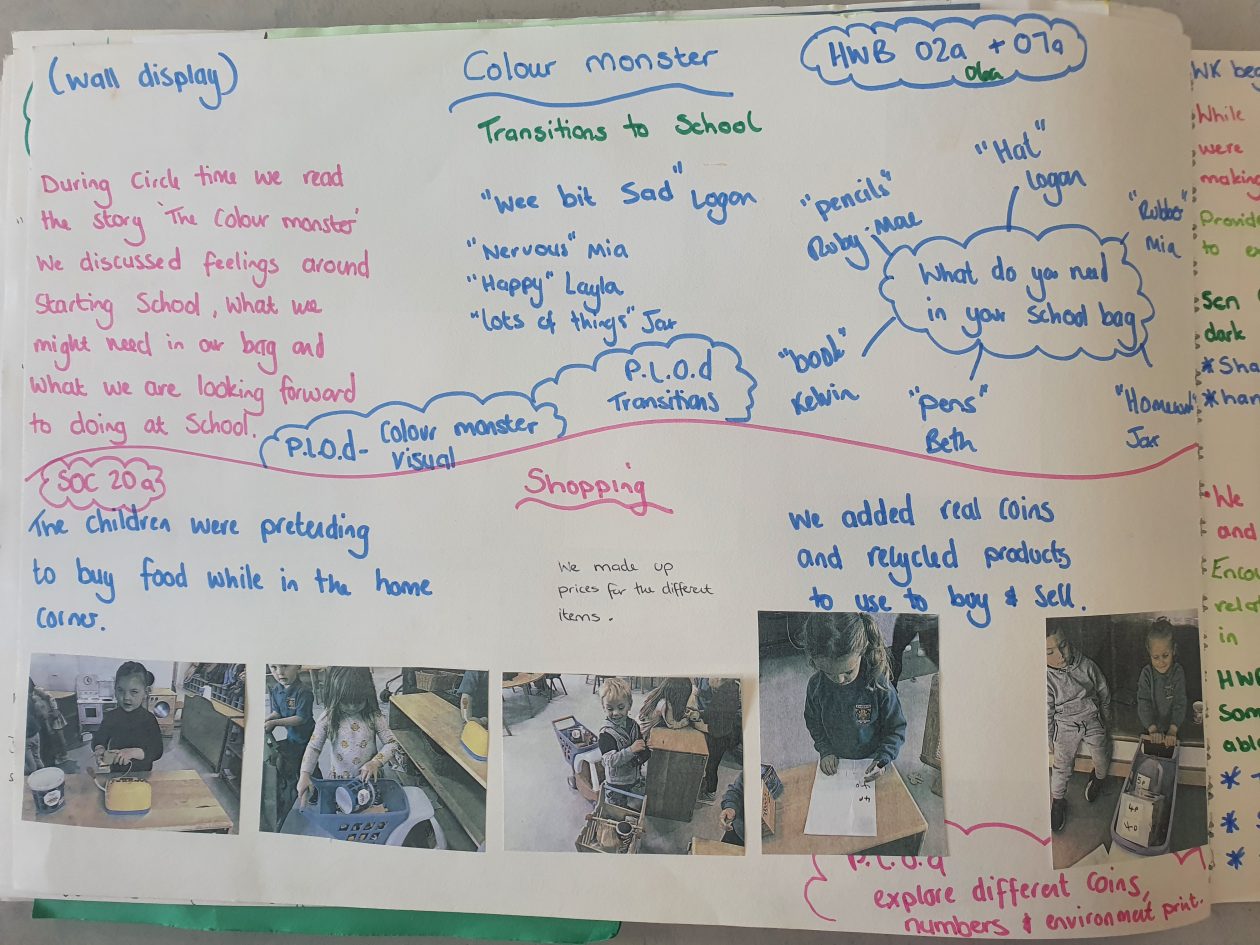 (wall display)
Colour monster
HWB 02a + 07a
06a
Transitions to School
During Circle time we read
the story 'The Colour monster'
We discussed feelings around
Starting School, what we
might need in our bag and
what we are looking forward
to doing at School.
"Wee bit Sad" Logan
"Nervous" Mia
"Happy" Layla
"lots of things" Jax
P.L.O.d
Transitions
P.L.O.d - Colour monster
visual
"Hat"
Logan
"pencils"
Ruby-Mae
"Rubber"
Mia
What do you need
in your School bag
"book"
Kelvin
"Pens"
Beth
"Homework"
Jax
SOC 20a
Shopping
The children were pretending
to buy food while in the home
corner.
We made up
prices for the different
items.
we added real coins
and recycled products
to use to buy & sell.
P.L.O.d
explore different coins,
numbers & environment print.
WK
While
were
making
to
Scn
dark
*
*
We
and
in
HWB
*
*
*